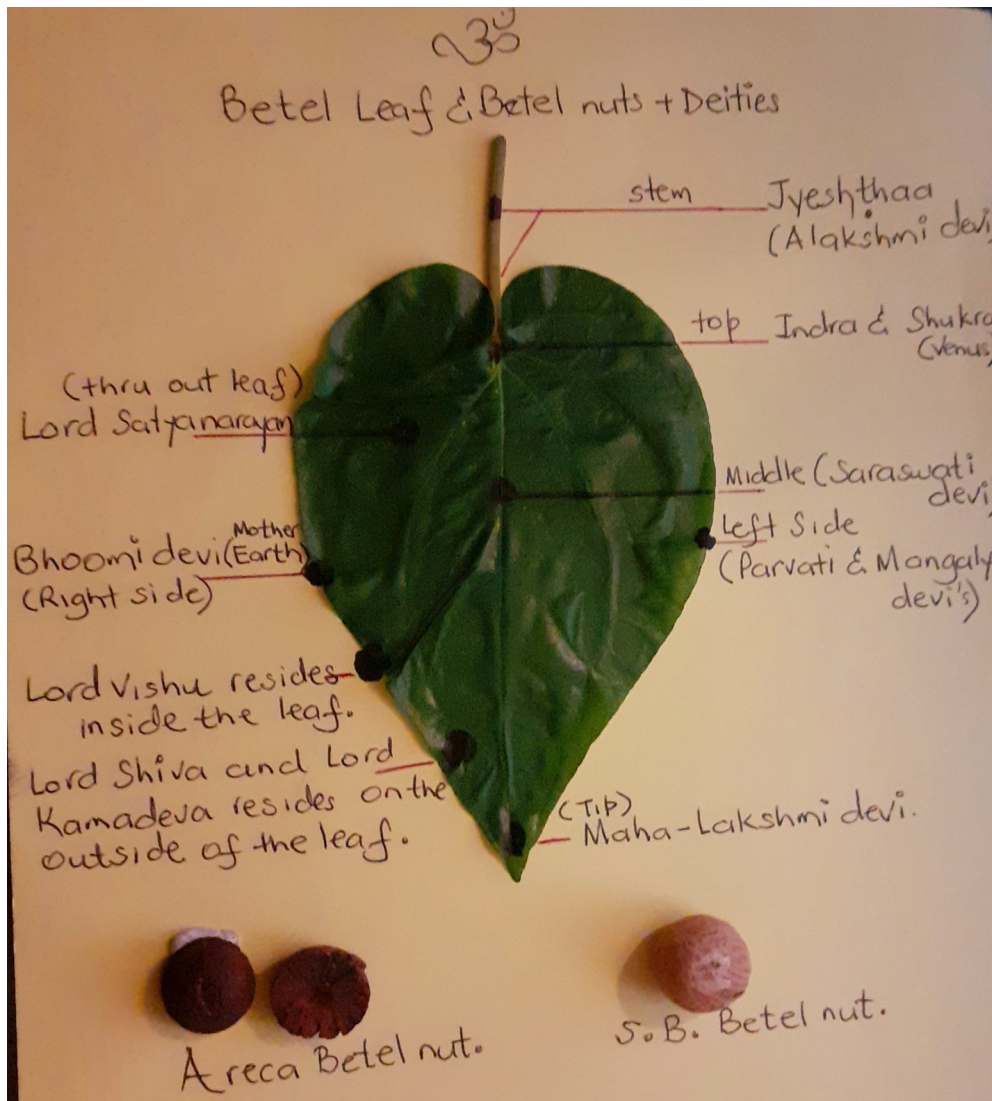 ॐ
Betel Leaf & Betel nuts + Deities
stem
Jyeshthaa
(Alakshmi devi)
top
Indra & Shukra
(Venus)
(thru out leaf)
Lord Satyanarayan
Middle (Saraswati
devi)
Left Side
(Parvati & Mangaly
devi's)
Mother
Bhoomi devi (Earth)
(Right side)
Lord Vishu resides
inside the leaf.
Lord Shiva and Lord
Kamadeva resides on the
outside of the leaf.
(Tip)
Maha-Lakshmi devi.
Areca Betel nut.
S.B. Betel nut.